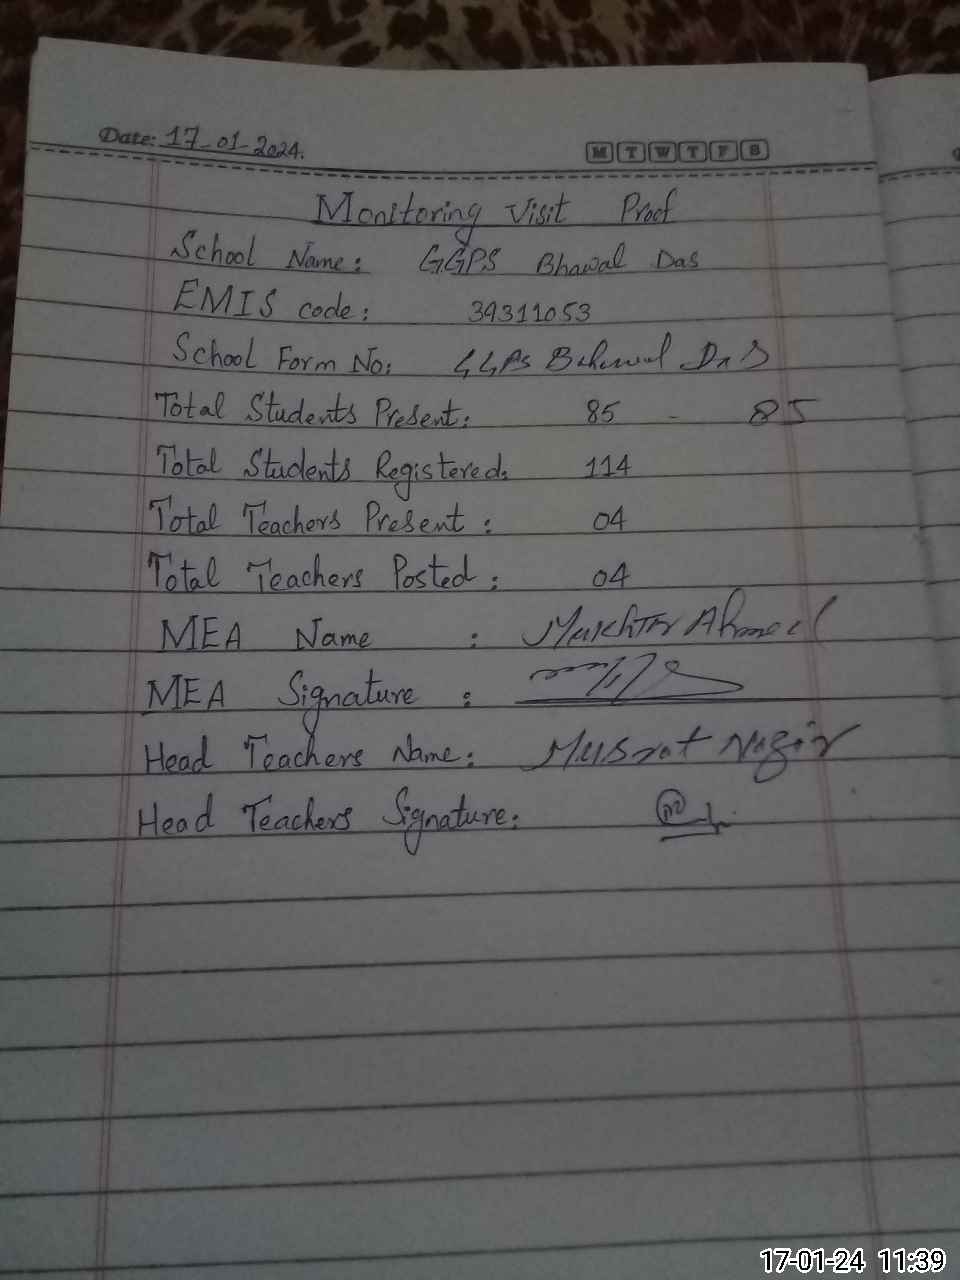 Date: 17-01-2024.
M T W T F S
Monitoring Visit Proof
School Name: GGPS Bhawal Das
EMIS code: 39311053
School Form No: GGPS Bahawal Das
Total Students Present: 85 - 85
Total Students Registered: 114
Total Teachers Present: 04
Total Teachers Posted: 04
MEA Name : Mukhtar Ahmed
MEA Signature :
Head Teachers Name: Musrat Nazir
Head Teachers Signature:
17-01-24 11:39